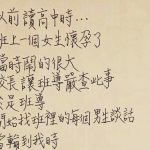 以前讀高中時...
班上一個女生懷孕了
當時鬧的很大
校長讓班導嚴查此事
於是班導
開始找班裡的每個男生談話
當輪到我時